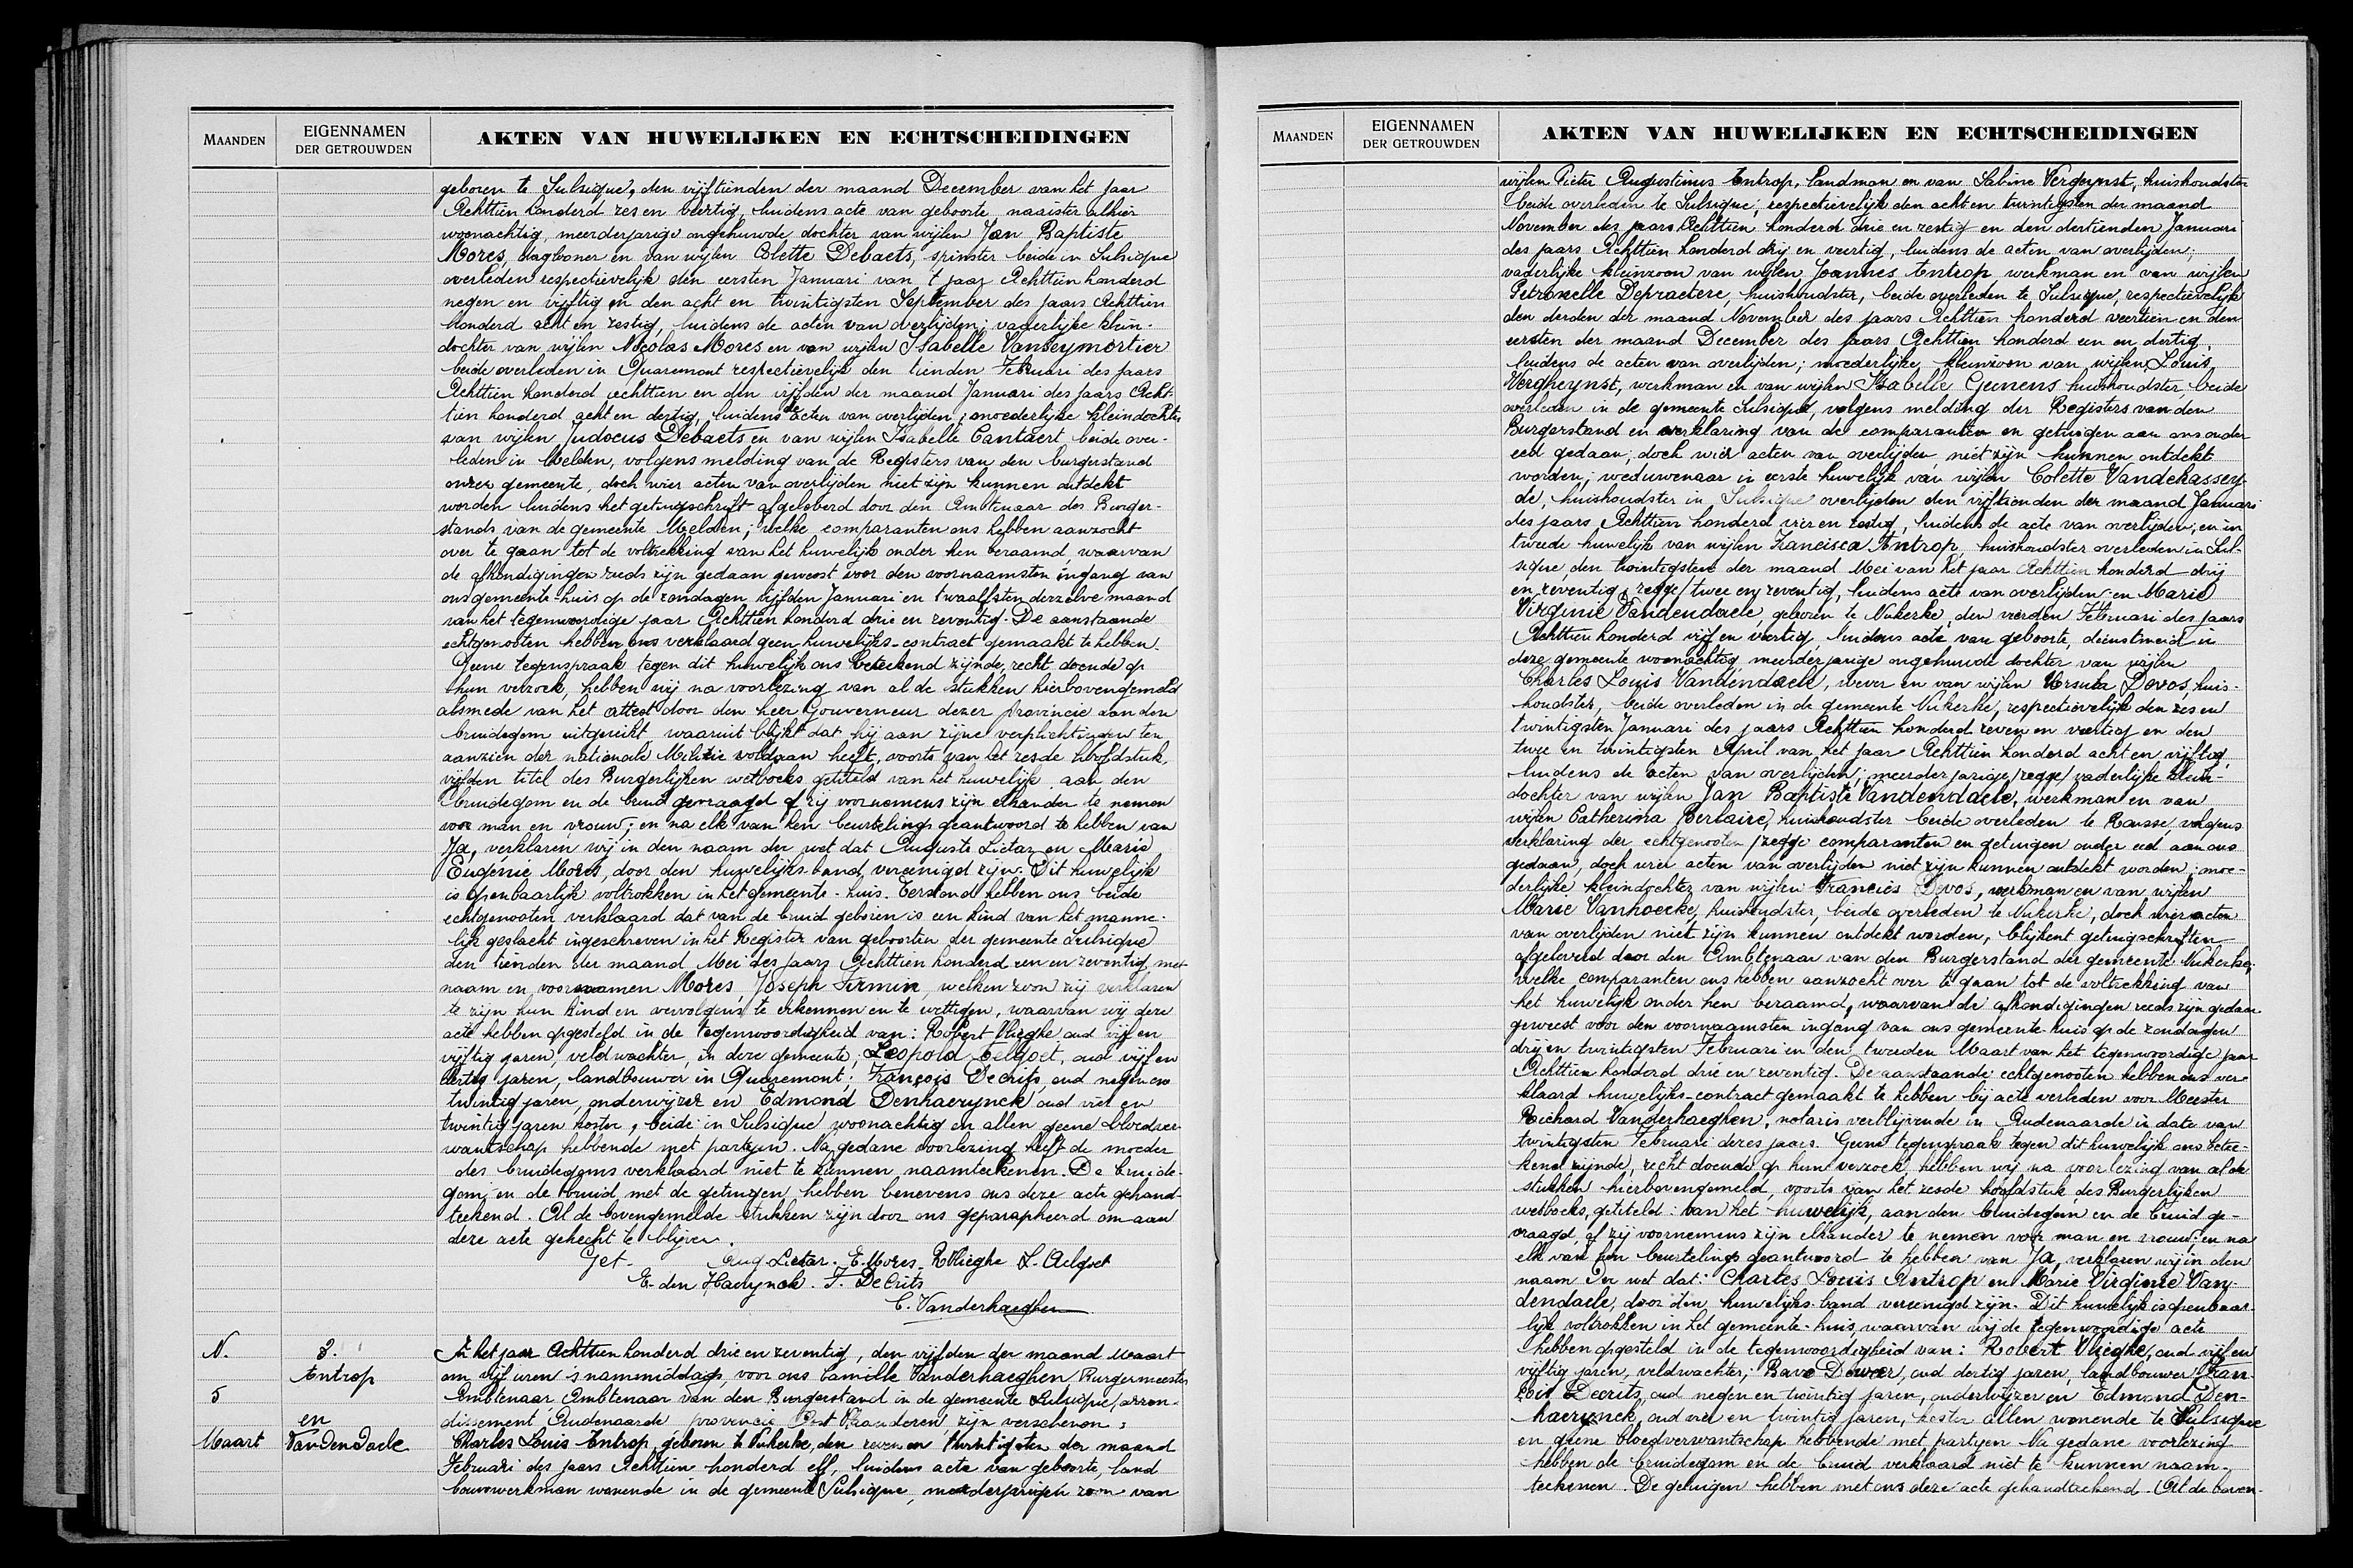 MAANDEN
EIGENNAMEN
DER GETROUWDEN
AKTEN VAN HUWELIJKEN EN ECHTSCHEIDINGEN
geboren te Sulsique, den vijftienden der maand December van het jaar
Achttien honderd zes en veertig, luidens acte van geboorte, naaister alhier
woonachtig, meerderjarige ongehuwde dochter van wijlen Jan Baptiste
Mores, dagloner en van wijlen Colette Debaets, spinster beide in Sulsique
overleden respectievelijk den eersten Januari van 't jaar Achttien honderd
negen en vijftig en den acht en twintigsten September des jaars Achttien
honderd acht en zestig, luidens de acten van overlijden; vaderlijke klein-
dochter van wijlen Nicolas Mores en van wijlen Isabelle Vanseymortier
beide overleden in Quaremont respectievelijk den tienden Februari des jaars
Achttien honderd achttien en den vijfden der maand Januari des jaars Acht-
tien honderd acht en dertig, luidens de acten van overlijden; moederlijke kleindochter
van wijlen Judocus Debaets en van wijlen Isabelle Cantaert, beide over-
leden in Melden, volgens melding van de Registers van den burgerstand
onzer gemeente, doch wier acten van overlijden niet zijn kunnen ontdekt
worden luidens het getuigschrift afgeleverd door den Ambtenaar des Burger-
stands van de gemeente Melden; welke comparanten ons hebben aanzocht
over te gaan tot de voltrekking van het huwelijk onder hen beraamd, waarvan
de afkondigingen reeds zijn gedaan geweest voor den voornaamsten ingang van
ons gemeente-huis op de zondagen vijfden Januari en twaalfsten derzelve maand
van het tegenwoordige jaar Achttien honderd drie en zeventig. De aanstaande
echtgenooten hebben ons verklaard geen huwelijks-contract gemaakt te hebben.
Geene tegenspraak tegen dit huwelijk ons beteekend zijnde, recht doende op
hun verzoek, hebben wij na voorlezing van al de stukken hierbovengemeld
alsmede van het attest door den heer Gouverneur dezer provincie aan den
bruidegom uitgereikt waaruit blijkt dat hij aan zijne verplichtingen ten
aanzien der nationale Militie voldaan heeft, voorts van het zesde hoofdstuk,
vijfden titel des Burgerlijken wetboeks getiteld van het huwelijk aan den
bruidegom en de bruid gevraagd of zij voornemens zijn elkander te nemen
voor man en vrouw; en na elk van hen beurtelings geantwoord te hebben van
Ja, verklaren wij in den naam der wet dat Auguste Lietar en Marie
Eugénie Mores, door den huwelijks-band vereenigd zijn. Dit huwelijk
is openbaarlijk voltrokken in het gemeente-huis. Terstond hebben ons beide
echtgenooten verklaard dat van de bruid geboren is een kind van het manne-
lijk geslacht ingeschreven in het Register van geboorten der gemeente Sulsique
den tienden der maand Mei des jaars Achttien honderd een en zeventig met
naam en voornamen Mores, Joseph Firmin welken zoon zij verklaren
te zijn hun kind en vervolgens te erkennen en te wettigen, waarvan wij deze
acte hebben opgesteld in de tegenwoordigheid van: Robert Vlieghe, oud vijf en
vijftig jaren, veldwachter, in deze gemeente; Leopold Aelgoet, oud vijf en
dertig jaren, landbouwer in Quaremont; François Decrits, oud negen en
twintig jaren, onderwijzer en Edmond Denhaerynck oud vier en
twintig jaren koster, beide in Sulsique woonachtig en allen geene bloedver-
wantschap hebbende met partijen. Na gedane voorlezing heeft de moeder
des bruidegoms verklaard niet te kunnen naamteekenen. De bruide-
gom en de bruid met de getuigen hebben benevens ons deze acte gehand-
teekend. Al de bovengemelde stukken zijn door ons geparapheerd om aan
deze acte gehecht te blijven.
Get. Aug Lietar. E. Mores. R Vlieghe L. Aelgoet
E. den Haerynck. F. Decrits
C. Vanderhaeghen
N.
5
Maart
3.
Antrop
en
VanDenDaele
In het jaar Achttien honderd drie en zeventig, den vijfden der maand Maart
om vijf uren 's nammiddags, voor ons Camille Vanderhaeghen Burgermeester
Ambtenaar Ambtenaar van den Burgerstand in de gemeente Sulsique, arron-
dissement Audenaarde, provincie Oost Vlaanderen, zijn verschenen:
Charles Louis Antrop, geboren te Nukerke, den zeven en twintigsten der maand
Februari des jaars Achttien honderd elf, luidens acte van geboorte, land
bouwwerkman wonende in de gemeente Sulsique, meerderjarigen zoon van
MAANDEN
EIGENNAMEN
DER GETROUWDEN
AKTEN VAN HUWELIJKEN EN ECHTSCHEIDINGEN
wijlen Pieter Augustinus Antrop, Landman en van Sabine Vergeynst, huishoudster
beide overleden te Sulsique, respectievelijk den acht en twintigsten der maand
November des jaars Achttien honderd drie en zestig en den dertienden Januari
des jaars Achttien honderd drij en veertig, luidens de acten van overlijden;
vaderlijke kleinzoon van wijlen Joannes Antrop werkman en van wijlen
Petronelle Depraetere, huishoudster, beide overleden te Sulsique, respectievelijk
den derden der maand November des jaars Achttien honderd veertien en den
eersten der maand December des jaars Achttien honderd een en dertig,
luidens de acten van overlijden; moederlijke kleinzoon van wijlen Louis
Vergheynst, werkman en van wijlen Isabelle Geenens huishoudster, beide
overleden in de gemeente Sulsique, volgens melding der Registers van den
Burgerstand en verklaring van de comparanten en getuigen aan ons onder
eed gedaan, doch wier acten van overlijden niet zijn kunnen ontdekt
worden; weduwenaar in eerste huwelijk van wijlen Colette Vandekassey-
de, huishoudster in Sulsique overlijden den vijftienden der maand Januari
des jaars Achttien honderd vier en zestig, luidens de acte van overlijden; en in
tweede huwelijk van wijlen Francisca Antrop, huishoudster overleden in Sul-
sique, den twintigsten der maand Mei van het jaar Achttien honderd drij
en zeventig, zegge/ twee en zeventig, luidens acte van overlijden en Marie
Virginie Vandendaele, geboren te Nukerke, den vierden Februari des jaars
Achttien honderd vijf en veertig, luidens acte van geboorte, dienstmeid in
deze gemeente woonachtig meerderjarige ongehuwde dochter van wijlen
Charles Louis Vandendaele, wever en van wijlen Ursula Devos, huis-
houdster, beide overleden in de gemeente Nukerke, respectievelijk den zes en
twintigsten Januari des jaars Achttien honderd zeven en veertig en den
twee en twintigsten April van het jaar Achttien honderd acht en vijftig,
luidens de acten van overlijden; meerderjarige/zegge/ vaderlijke klein-
dochter van wijlen Jan Baptiste Vandendaele, werkman en van
wijlen Catherina Berlaire, huishoudster beide overleden te Ronsse volgens
verklaring der echtgenooten /zegge comparanten en getuigen onder eed aan ons
gedaan, doch wier acten van overlijden niet zijn kunnen ontdekt worden; moe-
derlijke kleindochter van wijlen Francies Devos, werkman en van wijlen
Marie Vanhoecke, huishoudster, beide overleden te Nukerke, doch wier acten
van overlijden niet zijn kunnen ontdekt worden, blijkent getuigschriften
afgeleverd door den Ambtenaar van den Burgerstand der gemeente Nukerke;
welke comparanten ons hebben aanzocht over te gaan tot de voltrekking van
het huwelijk onder hen beraamd, waarvan de afkondigingen reeds zijn gedaan
geweest voor den voornaamsten ingang van ons gemeente-huis op de zondagen
drij en twintigsten Februari en den tweeden Maart van het tegenwoordige jaar
Achttien honderd drie en zeventig. De aanstaande echtgenooten hebben ons ver-
klaard huwelijks-contract gemaakt te hebben bij acte verleden voor Meester
Richard Vanderhaeghen, notaris verblijvende in Audenaarde in date van
twintigsten Februari dezes jaars. Geene tegenspraak tegen dit huwelijk ons betee-
kend zijnde, recht doende op hun verzoek, hebben wij na voorlezing van al de
stukken hierbovengemeld, voorts van het zesde hoofdstuk des Burgerlijken
wetboeks, getiteld: van het huwelijk, aan den bruidegom en de bruid ge-
vraagd, of zij voornemens zijn elkander te nemen voor man en vrouw; en na
elk van hen beurtelings geantwoord te hebben van Ja, verklaren wij in den
naam der wet dat: Charles Louis Antrop en Marie Virginie Van-
dendaele, door den huwelijks-band vereenigd zijn. Dit huwelijk is openbaar-
lijk voltrokken in het gemeente-huis, waarvan wij de tegenwoordige acte
hebben opgesteld in de tegenwoordigheid van: Robert Vlieghe, oud vijf en
vijftig jaren, veldwachter, Bavo Dewaer, oud dertig jaren, landbouwer Fran-
çois Decrits, oud negen en twintig jaren, onderwijzer en Edmond Den-
haerynck, oud vier en twintig jaren, koster allen wonende te Sulsique
en geene bloedverwantschap hebbende met partijen. Na gedane voorlezing
hebben de bruidegom en de bruid verklaard niet te kunnen naam-
teekenen. De getuigen hebben met ons deze acte gehandteekend. Al de boven-